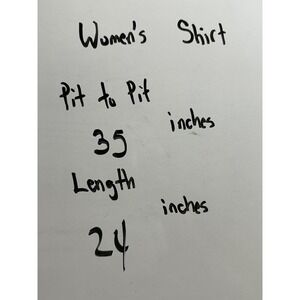 Women's Shirt
Pit to Pit
35 inches
Length
24 inches